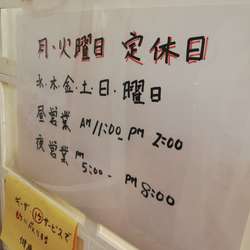 月、火曜日 定休日
水・木・金・土・日・曜日
昼営業 AM 11:00 PM 2:00
夜営業 PM 5:00 - PM 8:00
サービスで